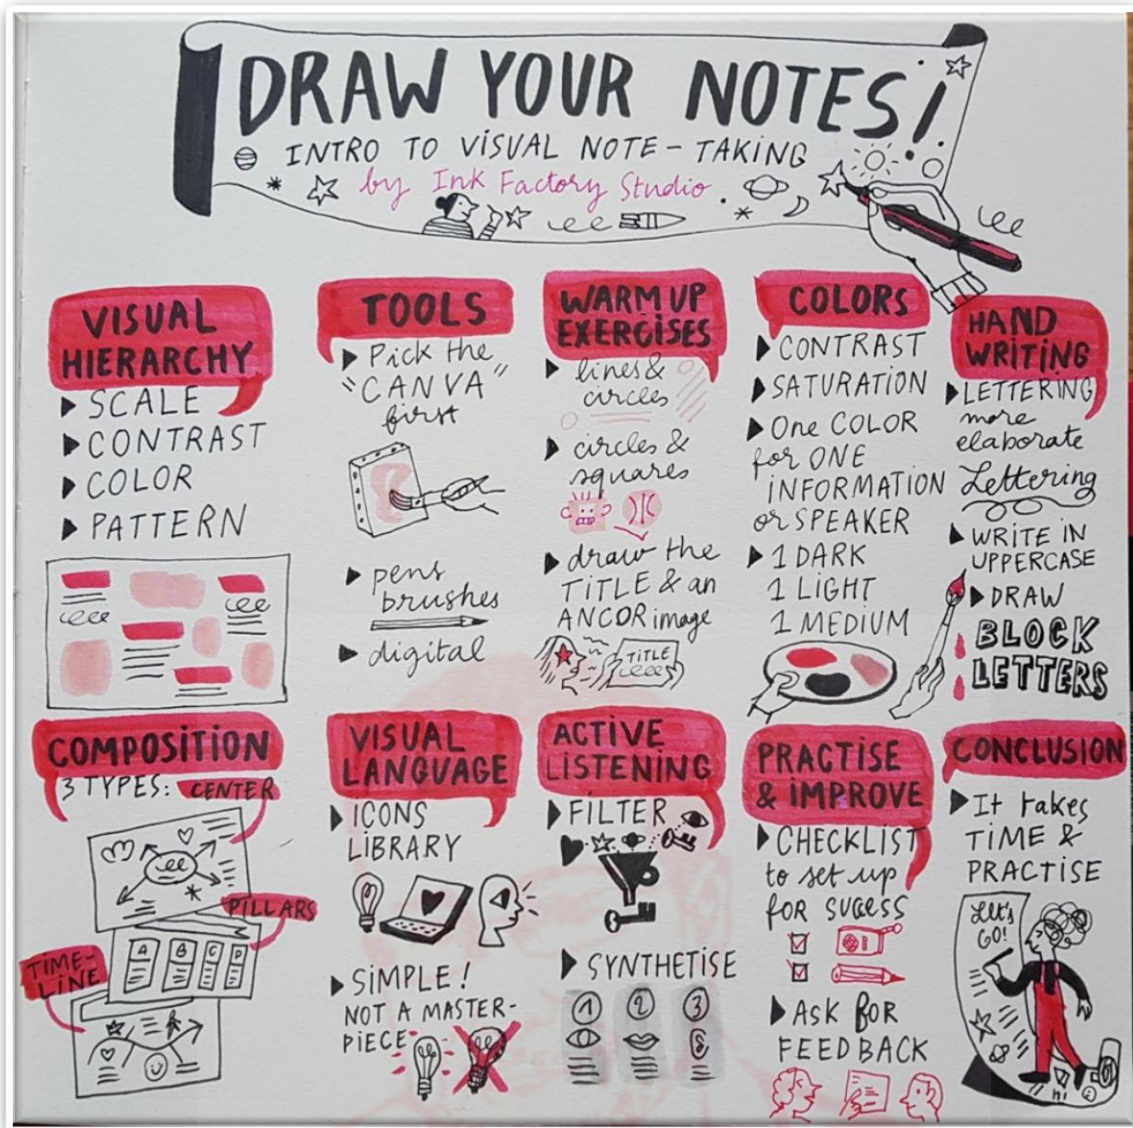 DRAW YOUR NOTES!
INTRO TO VISUAL NOTE-TAKING
by Ink Factory Studio
VISUAL
HIERARCHY
SCALE
CONTRAST
COLOR
PATTERN
TOOLS
Pick the
"CANVA"
first
pens
brushes
digital
WARM UP
EXERCISES
lines &
circles
circles &
squares
draw the
TITLE & an
ANCOR image
TITLE
COLORS
CONTRAST
SATURATION
One COLOR
for ONE
INFORMATION
or SPEAKER
1 DARK
1 LIGHT
1 MEDIUM
HAND
WRITING
LETTERING
more
elaborate
Lettering
WRITE IN
UPPERCASE
DRAW
BLOCK
LETTERS
COMPOSITION
3 TYPES: CENTER
PILLARS
A B C D
TIME-
LINE
VISUAL
LANGUAGE
ICONS
LIBRARY
SIMPLE!
NOT A MASTER-
PIECE
ACTIVE
LISTENING
FILTER
SYNTHETISE
1 2 3
PRACTISE
& IMPROVE
CHECKLIST
to set up
for SUCESS
ASK FOR
FEEDBACK
CONCLUSION
It takes
TIME &
PRACTISE
Let's
GO!